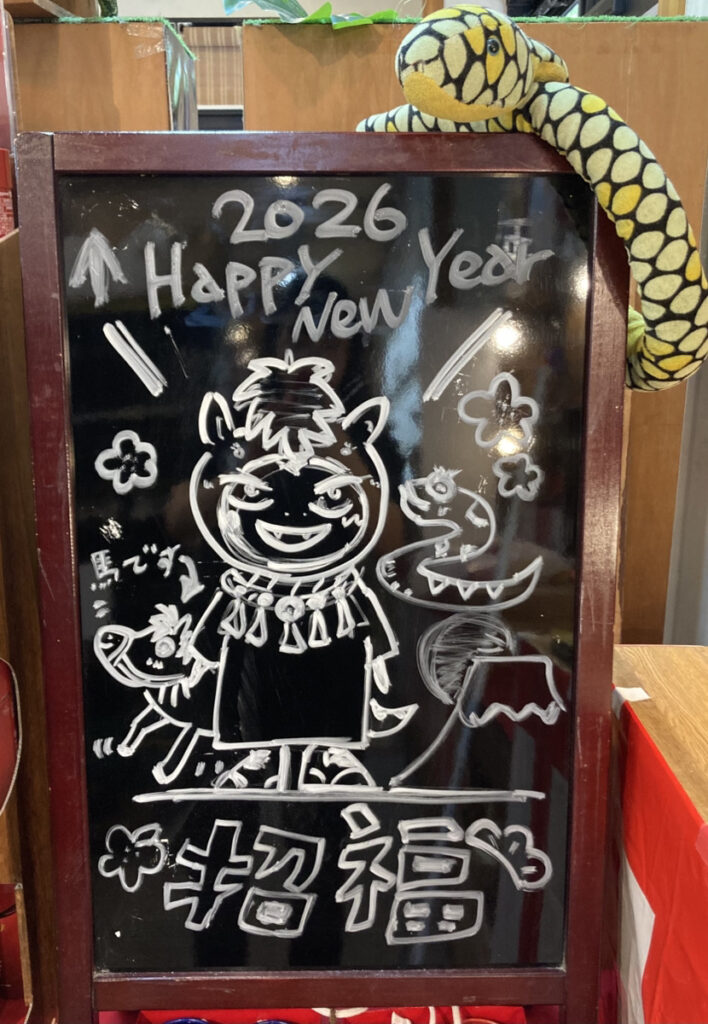 2026
Happy New Year
馬です
招福